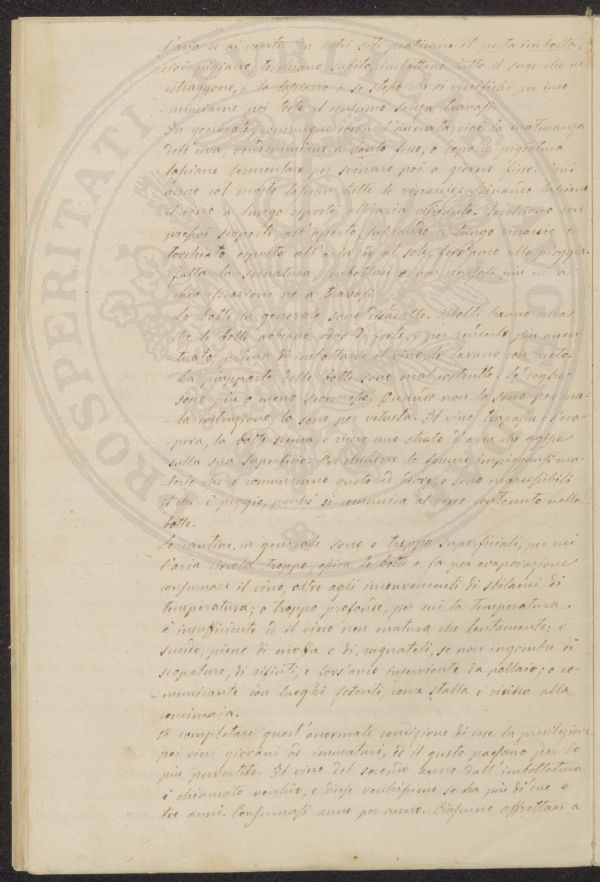 l'aria vi ai venti. In altri siti praticano il pesta imbotta,
cioè pigiano, torchiano subito, imbottano tutto il sugo che ne
estraggono, e lo lasciano a se stesso che si vinifichi per inco-
minciarne poi tosto il consumo senza travasi.
In generale, comunque corra l'annata, cioè la maturanza
dell'uva vendemmiano a santo fisso, e dopo la pigiatura
lasciano fermentare per svinare poi a giorno fisso. Ogni
anno col mosto lasciano tutte le vinaccie. Svinando lasciano
il vino a lungo esposto all'aria. Torchiano con
pressoi scoperti all'aperto, lasciando a lungo vinaccie e
torchiato esposto all'aria ed al sole, fors'anco alla pioggia.
Fatta la svinatura imbottasi e non pensasi più nè a
chiarificazione nè a travasi.
Le botti in generale sono disadatte. Molti hanno cura
che le botti abbiano odor di forte, e per renderlo più accen-
tuato, prima di imbottarvi il vino, le lavano con aceto.
La pluspartè delle botti sono mal costrutte. Le doghe
sono più o meno sconnesse. Quando non lo sono per ma-
-la costruzione, lo sono per vetustà. Il vino traspira, svapo-
pora, la botte scema, e riceve uno strato d'aria che agisce
sulla sua superficie. Per chiudere le fessure impiegansi ma-
terie che o comunicano gusto ed odore, o sono marcessibili
il che è peggio, poichè si comunica al vino contenuto nella
botte.
Le cantine in generale sono o troppo superficiali, per cui
l'aria circola troppo, essica le botti e fa per evaporazione
consumare il vino, oltre agli inconvenienti di sbilanci di
temperatura; o troppo profonde, per cui la temperatura
è insufficiente ed il vino non matura che lentamente; o
sucide, piene di muffa e di ragnateli, se non ingombre di
scopature, di rifiuti, e fors'anco inserviente da pollaio; o co-
-municante con luoghi fetenti, come stalla e vicina alla
concimaia.
A completare quest'anormale condizione di cose la predilezione
pei vini giovani ed immaturi, ed il gusto paesano per lo
più pervertito. Il vino del secondo anno dall'imbottatura
è chiamato vecchio, e dicesi vecchissimo se ha più di due o
tre anni. Consumasi anno per anno. Ciascuno affrettasi a
PROSPERITATI PUBLICAE